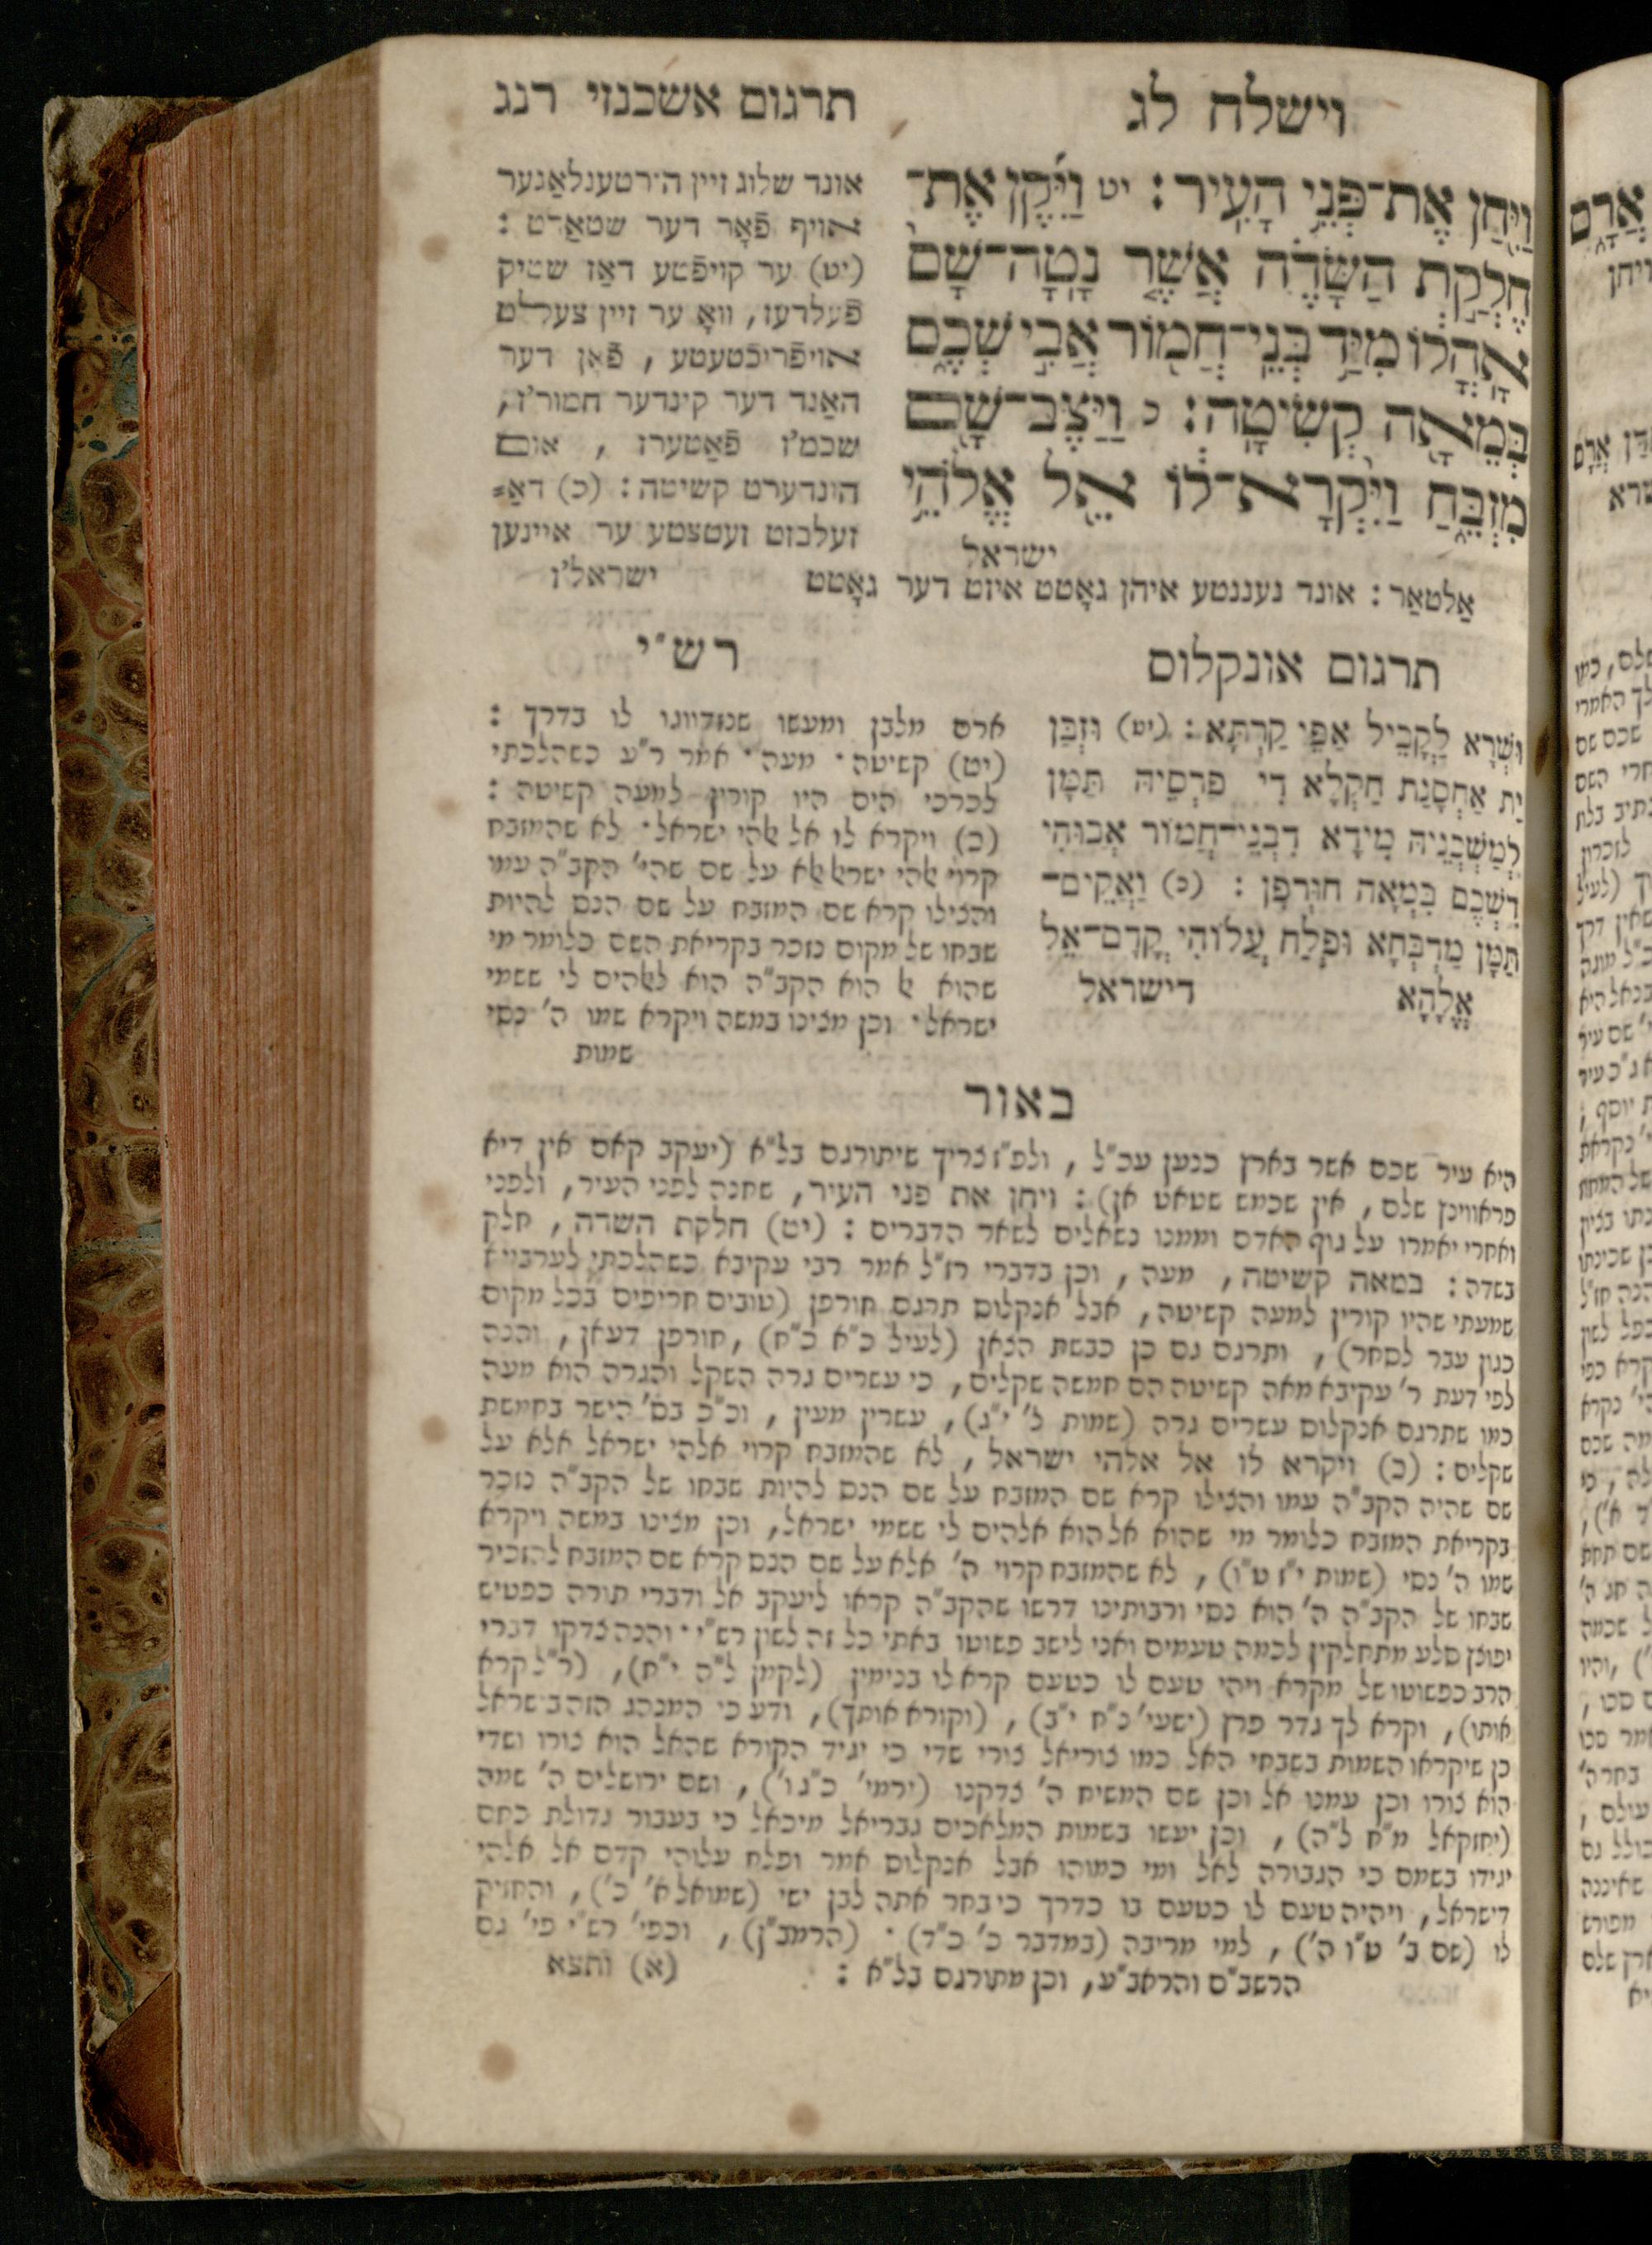 וישלח לג
תרגום אשכנזי רנג
וַיִּחַן אֶת־פְּנֵי הָעִיר: יט וַיִּקֶן אֶת־
חֶלְקַת הַשָּׂדֶה אֲשֶׁר נָטָה־שָׁם
אָהֳלוֹ מִיַּד בְּנֵי־חֲמוֹר אֲבִי שְׁכֶם
בְּמֵאָה קְשִׂיטָה: כ וַיַּצֶּב־שָׁם
מִזְבֵּחַ וַיִּקְרָא־לוֹ אֵל אֱלֹהֵי
ישראל
אונד שלוג זיין הירטענלאַגער
אויף פֿאָר דער שטאַדט :
(יט) ער קויפֿטע דאַז שטיק
פֿעלדעז, וואָ ער זיין צעלט
אויפֿריכֿטעטע , פֿאָן דער
האַנד דער קינדער חמור'ז,
שכם'ז פֿאַטערז , אום
הונדערט קשיטה: (כ) דאַ=
זעלבזט זעטצטע ער איינען
אַלטאַר: אונד נעננטע איהן גאָטט איזט דער גאָטט ישראל'ז
תרגום אונקלוס
וּשְׁרָא לָקֳבֵיל אַפֵּי קַרְתָּא: (יט) וּזְבַן
יַת אַחְסָנַת חַקְלָא דִי פרְסֵיהּ תַּמָּן
לְמַשְׁכְּנֵיהּ מִידָא דִבְנֵי־חֲמוֹר אֲבוּהִי
דִשְׁכֶם בִּמְאָה חוּרְפָן : (כ) וַאֲקֵים־
תַּמָּן מַדְבְּחָא וּפְלַח עֲלוֹהִי קֳדָם־אֵל
אֱלָהָא דישראל
רש"י
ארם מלבן ומעשו שנזדווגו לו בדרך :
(יט) קשיטה · מעה · אמר ר"ע כשהלכתי
לכרכי הים היו קורין למעה קשיטה :
(כ) ויקרא לו אל אלהי ישראל · לא שהמזבח
קרוי אלהי ישראל אלא על שם שהי' הקב"ה עמו
והצילו קרא שם המזבח על שם הנס להיות
שבחו של מקום נזכר בקריאת השם כלומר מי
שהוא אל הוא הקב"ה הוא לאלהים לי ששמי
ישראל · וכן מצינו במשה ויקרא שמו ה' נסי
שמות
באור
היא עיר שכם אשר בארץ כנען עכ"ל , ולפ"ז צריך שיתורגם בל"א (יעקב קאם אין דיא
פראווינץ שלם , אין שכמש שטאט אן) : ויחן את פני העיר, שחנה לפני העיר, ולפני
ואחרי יאמרו על גוף האדם וממנו נשאלים לשאר הדברים : (יט) חלקת השדה , חלק
בשדה : במאה קשיטה , מעה , וכן בדברי רז"ל אמר רבי עקיבא כשהלכתי לערביי'א
שמעתי שהיו קורין למעה קשיטה, אבל אנקלוס תרגם חורפן (טובים חריפים בכל מקום
כגון עבר לסחר) , ותרגם גם כן כבשת הצאן (לעיל כ"א כ"ח) , חורפן דעאן , והנה
לפי דעת ר' עקיבא מאה קשיטה הם חמשה שקלים , כי עשרים גרה השקל והגרה הוא מעה
כמו שתרגם אנקלוס עשרים גרה (שמות ל' י"ג) , עשרין מעין , וכ"כ בס' הישר בחמשת
שקלים : (כ) ויקרא לו אל אלהי ישראל , לא שהמזבח קרוי אלהי ישראל אלא על
שם שהיה הקב"ה עמו והצילו קרא שם המזבח על שם הנס להיות שבחו של הקב"ה נזכר
בקריאת המזבח כלומר מי שהוא אל הוא אלהים לי ששמי ישראל, וכן מצינו במשה ויקרא
שמו ה' נסי (שמות י"ז ט"ו) , לא שהמזבח קרוי ה' אלא על שם הנס קרא שם המזבח להזכיר
שבחו של הקב"ה ה' הוא נסי ורבותינו דרשו שהקב"ה קראו ליעקב אל ודברי תורה כפטיש
יפוצץ סלע מתחלקין לכמה טעמים ואני לישב פשוטו באתי כל זה לשון רש"י · והנה צדקו דברי
הרב כפשוטו של מקרא ויהי טעם לו כטעם קרא לו בנימין (לקמן ל"ה י"ח) , (ר"ל קרא
אותו) , וקרא לך גדר פרץ (ישעי' נ"ח י"ב) , (וקורא אותך) , ודע כי המנהג הזה בישראל
כן שיקראו השמות בשבחי האל כמו צוריאל צורי שדי כי יגיד הקורא שהאל הוא צורו ושדי
הוא צורו וכן עמנו אל וכן שם המשיח ה' צדקנו (ירמי' כ"ג ו') , ושם ירושלים ה' שמה
(יחזקאל מ"ח ל"ה) , וכן יעשו בשמות המלאכים גבריאל מיכאל כי בעבור גדולת כחם
יגידו בשמם כי הגבורה לאל ומי כמוהו אבל אנקלוס אמר ופלח עלוהי קדם אל אלהי
דישראל, ויהיה טעם לו כטעם בו כדרך כי בחר אתה לבן ישי (שמואל א' כ') , והחזיק
לו (שם ב' ט"ו ה') , למי מריבה (במדבר כ' כ"ד) · (הרמב"ן) , וכפי' רש"י פי' גם
הרשב"ם והראב"ע, וכן מתורגם בל"א : (א) ותצא